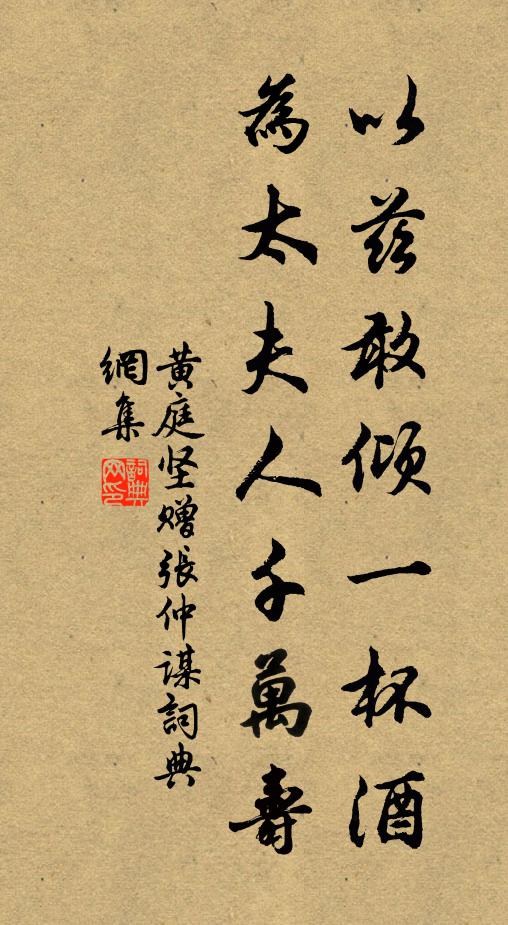 以茲敢傾一杯酒
為太夫人千萬壽
黄庭坚赠張仲謀詞典
網集
詞典網印